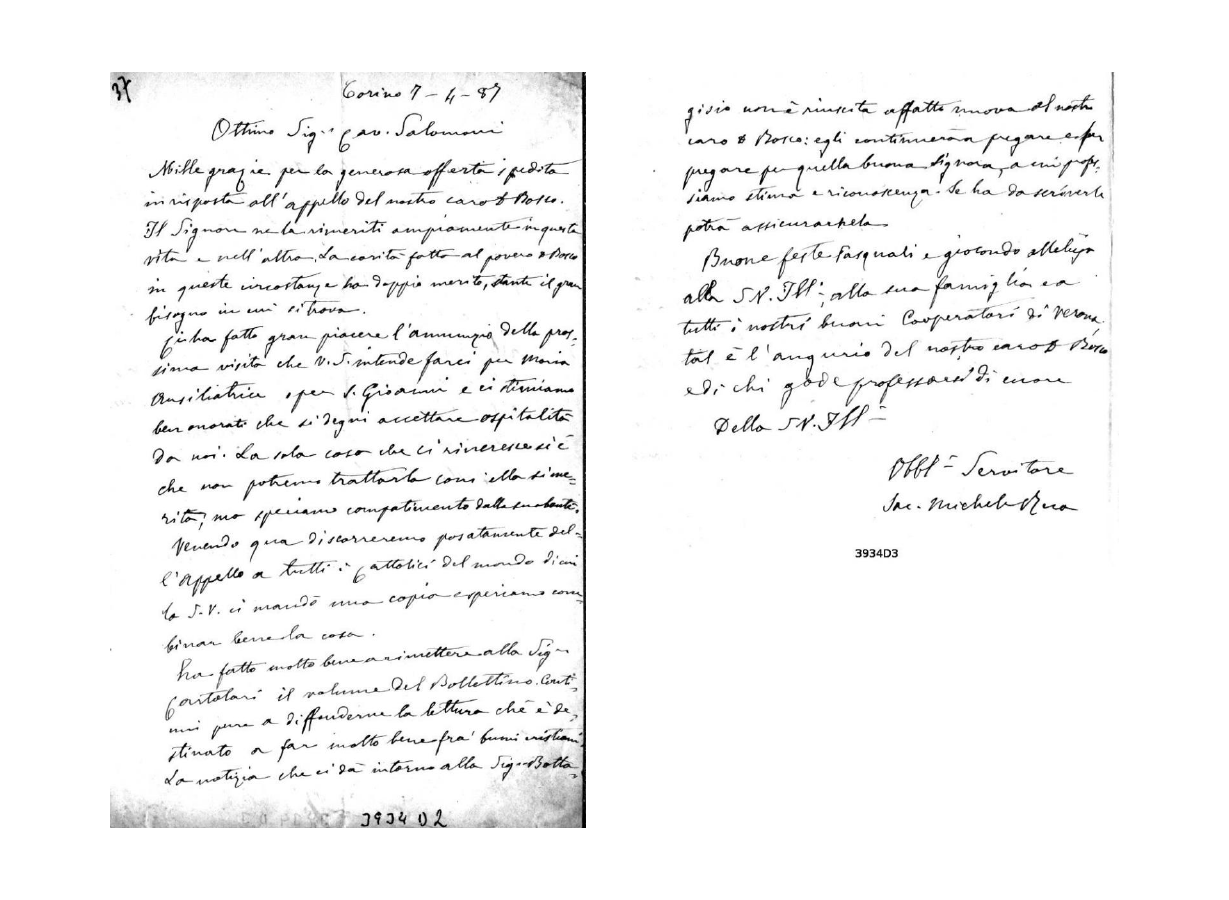 37
Torino 7 - 4 - 87
Ottimo Sigr Cav. Salomoni
Mille grazie per la generosa offerta spedita
in risposta all'appello del nostro caro D Bosco.
Il Signore ne la rimeriti ampiamente in questa
vita e nell'altra. La carità fatta al povero D Bosco
in queste circostanze ha doppio merito, stante il gran
bisogno in cui si trova.
Ci ha fatto gran piacere l'annunzio della pros-
sima visita che V. S. intende farci per Maria
Ausiliatrice o per S. Gioanni e ci stimiamo
ben onorati che si degni accettare ospitalità
da noi. La sola cosa che ci rincresce si è
che non potremo trattarla com'ella si me-
rita; ma speriamo compatimento dalla sua bontà.
Venendo qua discorreremo posatamente del-
l'Appello a tutti i Cattolici del mondo di cui
la S. V. ci mandò una copia e speriamo com-
binar bene la cosa.
Ha fatto molto bene a rimettere alla Sigra
il volume del Bollettino. Conti-
nui pure a diffonderne la lettura chè è de-
stinato a far molto bene fra' buoni cristiani.
La notizia che ci dà intorno alla Sigra Botta-
3934D2
gisio non è riuscita affatto nuova al nostro
caro D Bosco: egli continuerà a pregare e far
pregare per quella buona Signora, a cui profes-
siamo stima e riconoscenza. Se ha da scriverle
potrà assicurarnela
Buone feste Pasquali e giocondo alleluja
alla S. V. Ill alla sua famiglia e a
tutti i nostri buoni Cooperatori di Verona,
tal è l'augurio del nostro caro D Bosco
e di chi gode professarsi di cuore
Della S. V. Ill
Obbl Servitore
Sac. Michele Rua
3934D3